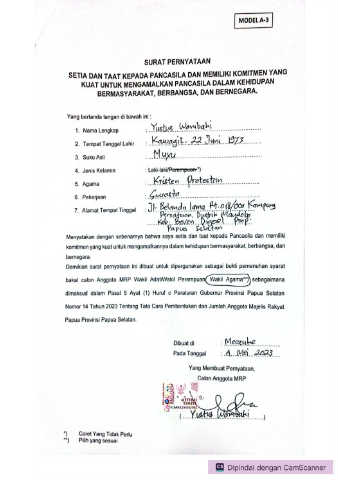 MODEL A-3
SURAT PERNYATAAN
SETIA DAN TAAT KEPADA PANCASILA DAN MEMILIKI KOMITMEN YANG
KUAT UNTUK MENGAMALKAN PANCASILA DALAM KEHIDUPAN
BERMASYARAKAT, BERBANGSA, DAN BERNEGARA.
Yang bertanda tangan di bawah ini :
1. Nama Lengkap : Yustus Wambahi
2. Tempat Tanggal Lahir : 22 Juni 1973
3. Suku Asli : Muyu
4. Jenis Kelamin : Laki-laki/Perempuan*)
5. Agama : Kristen Protestan
6. Pekerjaan : Swasta
7. Alamat Tempat Tinggal : Jl. Belanda lama Rt. Kampung
Persatuan, Distrik Mandobo
Kab. Boven Digoel Prop.
Papua Selatan
Menyatakan dengan sebenarnya bahwa saya setia dan taat kepada Pancasila dan memiliki
komitmen yang kuat untuk mengamalkannya dalam kehidupan bermasyarakat, berbangsa, dan
bernegara.
Demikian surat pernyataan ini dibuat untuk dipergunakan sebagai bukti pemenuhan syarat
bakal calon Anggota MRP Wakil Adat/Wakil Perempuan/Wakil Agama**) sebagaimana
dimaksud dalam Pasal 8 Ayat (1) Huruf c Peraturan Gubernur Provinsi Papua Selatan
Nomor 14 Tahun 2023 Tentang Tata Cara Pembentukan dan Jumlah Anggota Majelis Rakyat
Papua Provinsi Papua Selatan.
Dibuat di : Merauke
Pada Tanggal : Mei 2023
Yang Membuat Pernyataan,
Calon Anggota MRP
Yustus Wambahi
*) Coret Yang Tidak Perlu
**) Pilih yang sesuai
Dipindai dengan CamScanner